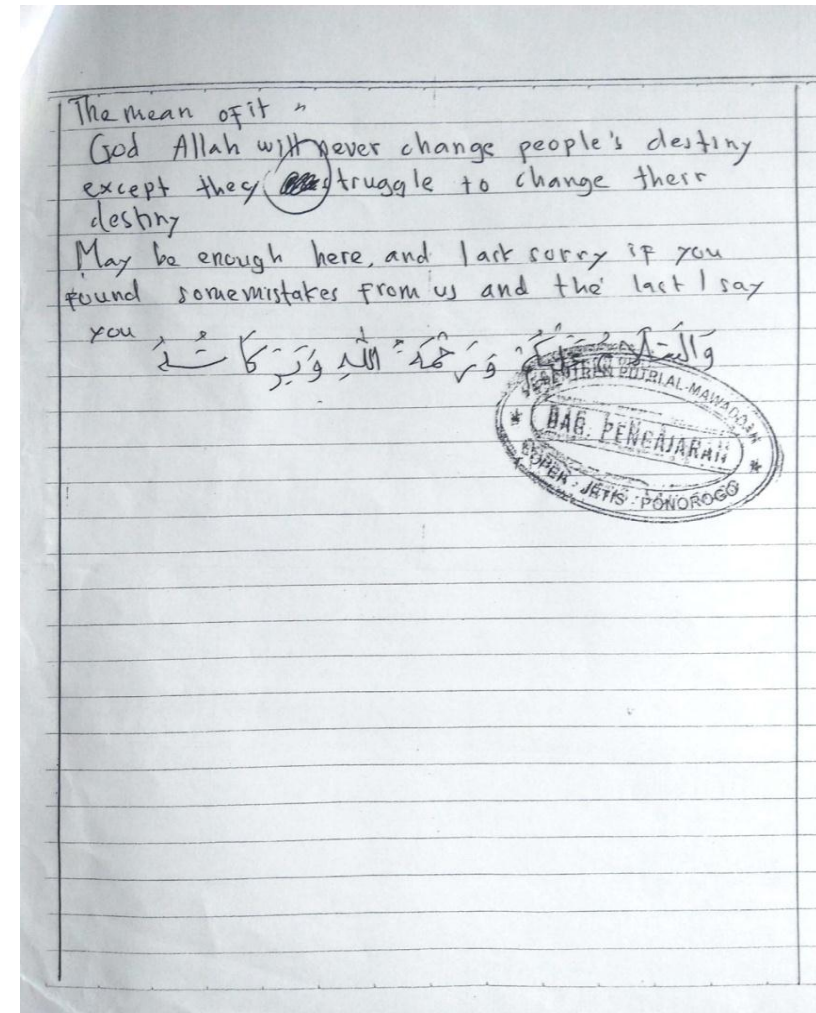 The mean of it "
God Allah will never change people's destiny
except they struggle to change therr
destiny
May be enough here, and last sorry if you
found somemistakes from us and the last I say
you
وَالسَّلَامُ عَلَيْكُمْ وَرَحْمَةُ اللهِ وَبَرَكَاتُهُ
PUTRI AL-MAWADDAH
BAG. PENGAJARAN
COPER - JETIS - PONOROGO